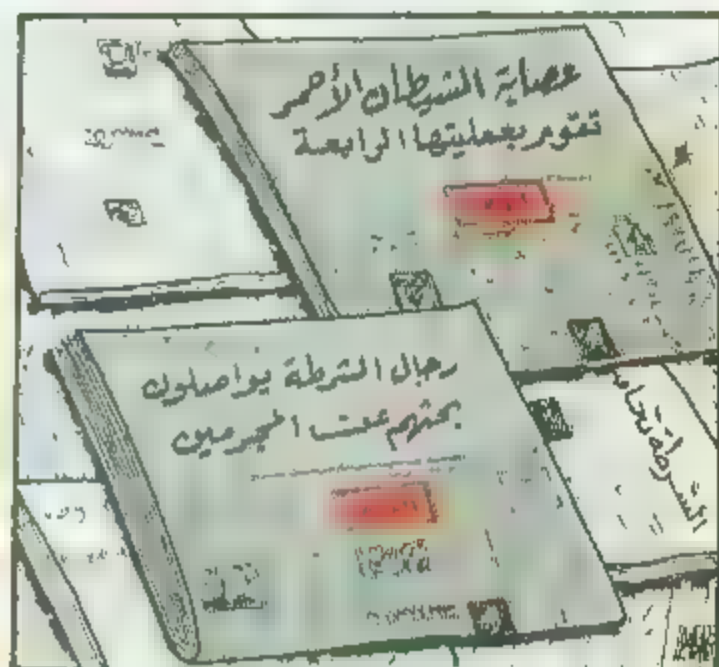 عصابة الشيطان الأحمر
تقوم بعمليتها الرابعة
رجال الشرطة يواصلون
بحثهم عن المجرمين
الشرطة